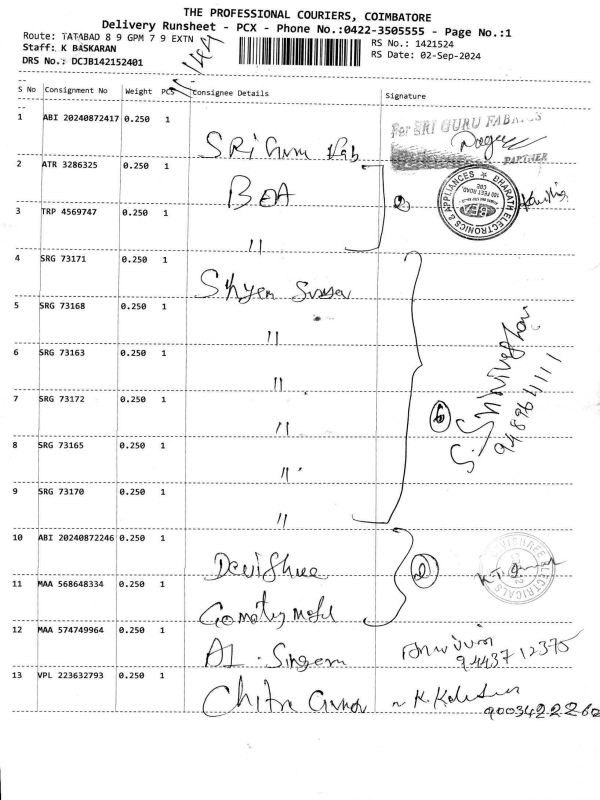 THE PROFESSIONAL COURIERS, COIMBATORE
Delivery Runsheet - PCX - Phone No.:0422-3505555 - Page No.:1
Route: TATABAD 8 9 GPM 7 9 EXTN
RS No.: 1421524
Staff: K BASKARAN
RS Date: 02-Sep-2024
DRS No.: DCJB142152401
S No Consignment No Weight PCS Consignee Details Signature
1 ABI 20240872417 0.250 1 SRi Guru Fab For SRI GURU FABRICS
PARTNER
2 ATR 3286325 0.250 1 BEA 2
BHARATH ELECTRONICS & APPLIANCES
100 FEET ROAD,
CBE
BEA
3 TRP 4569747 0.250 1 "
4 SRG 73171 0.250 1 Shyam
5 SRG 73168 0.250 1 "
6 SRG 73163 0.250 1 "
7 SRG 73172 0.250 1 " 6
9489641111
8 SRG 73165 0.250 1 "
9 SRG 73170 0.250 1 "
10 ABI 20240872246 0.250 1 Devishree 2
DEVISHREE ELECTRICALS
11 MAA 568648334 0.250 1 Gomathy
12 MAA 574749964 0.250 1 AL.
9443712375
13 VPL 223632793 0.250 1 Chitra
9003422260